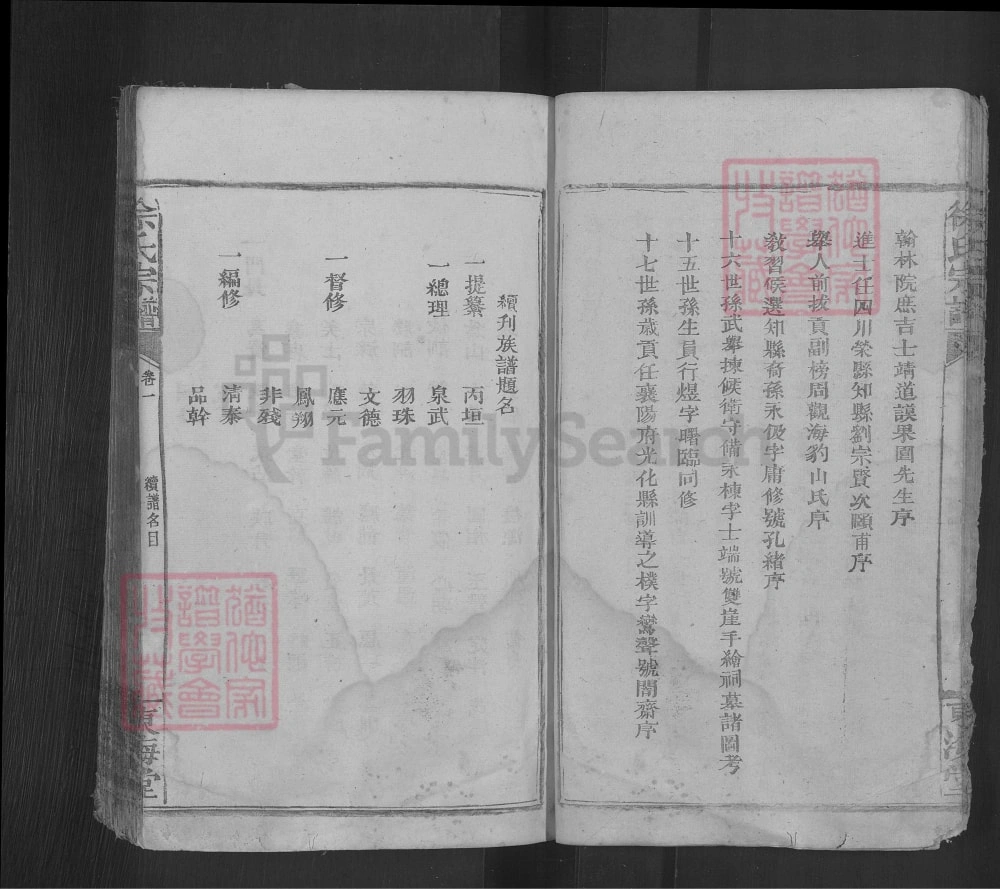 翰林院庶吉士靖道謨果園先生序
進士任四川榮縣知縣劉宗賢次頤甫序
舉人前拔貢副榜周觀海豹山氏序
教習候選知縣裔孫永伋字庸修號孔緒序
十六世孫武舉揀候衛守備永棟字士端號雙崖手繪祠墓諸圖考
十五世孫生員行煜字曙臨同修
十七世孫歲貢任襄陽府光化縣訓導之樸字鸞聲號闇齋序
徐氏宗譜
東海堂
續刊族譜題名
一提纂 丙垣
一總理 泉武
羽珠
文德
一督修 應元
鳳翔
非殘
一編修 清泰
品幹
徐氏宗譜 卷一 續譜名目 東海堂
FamilySearch